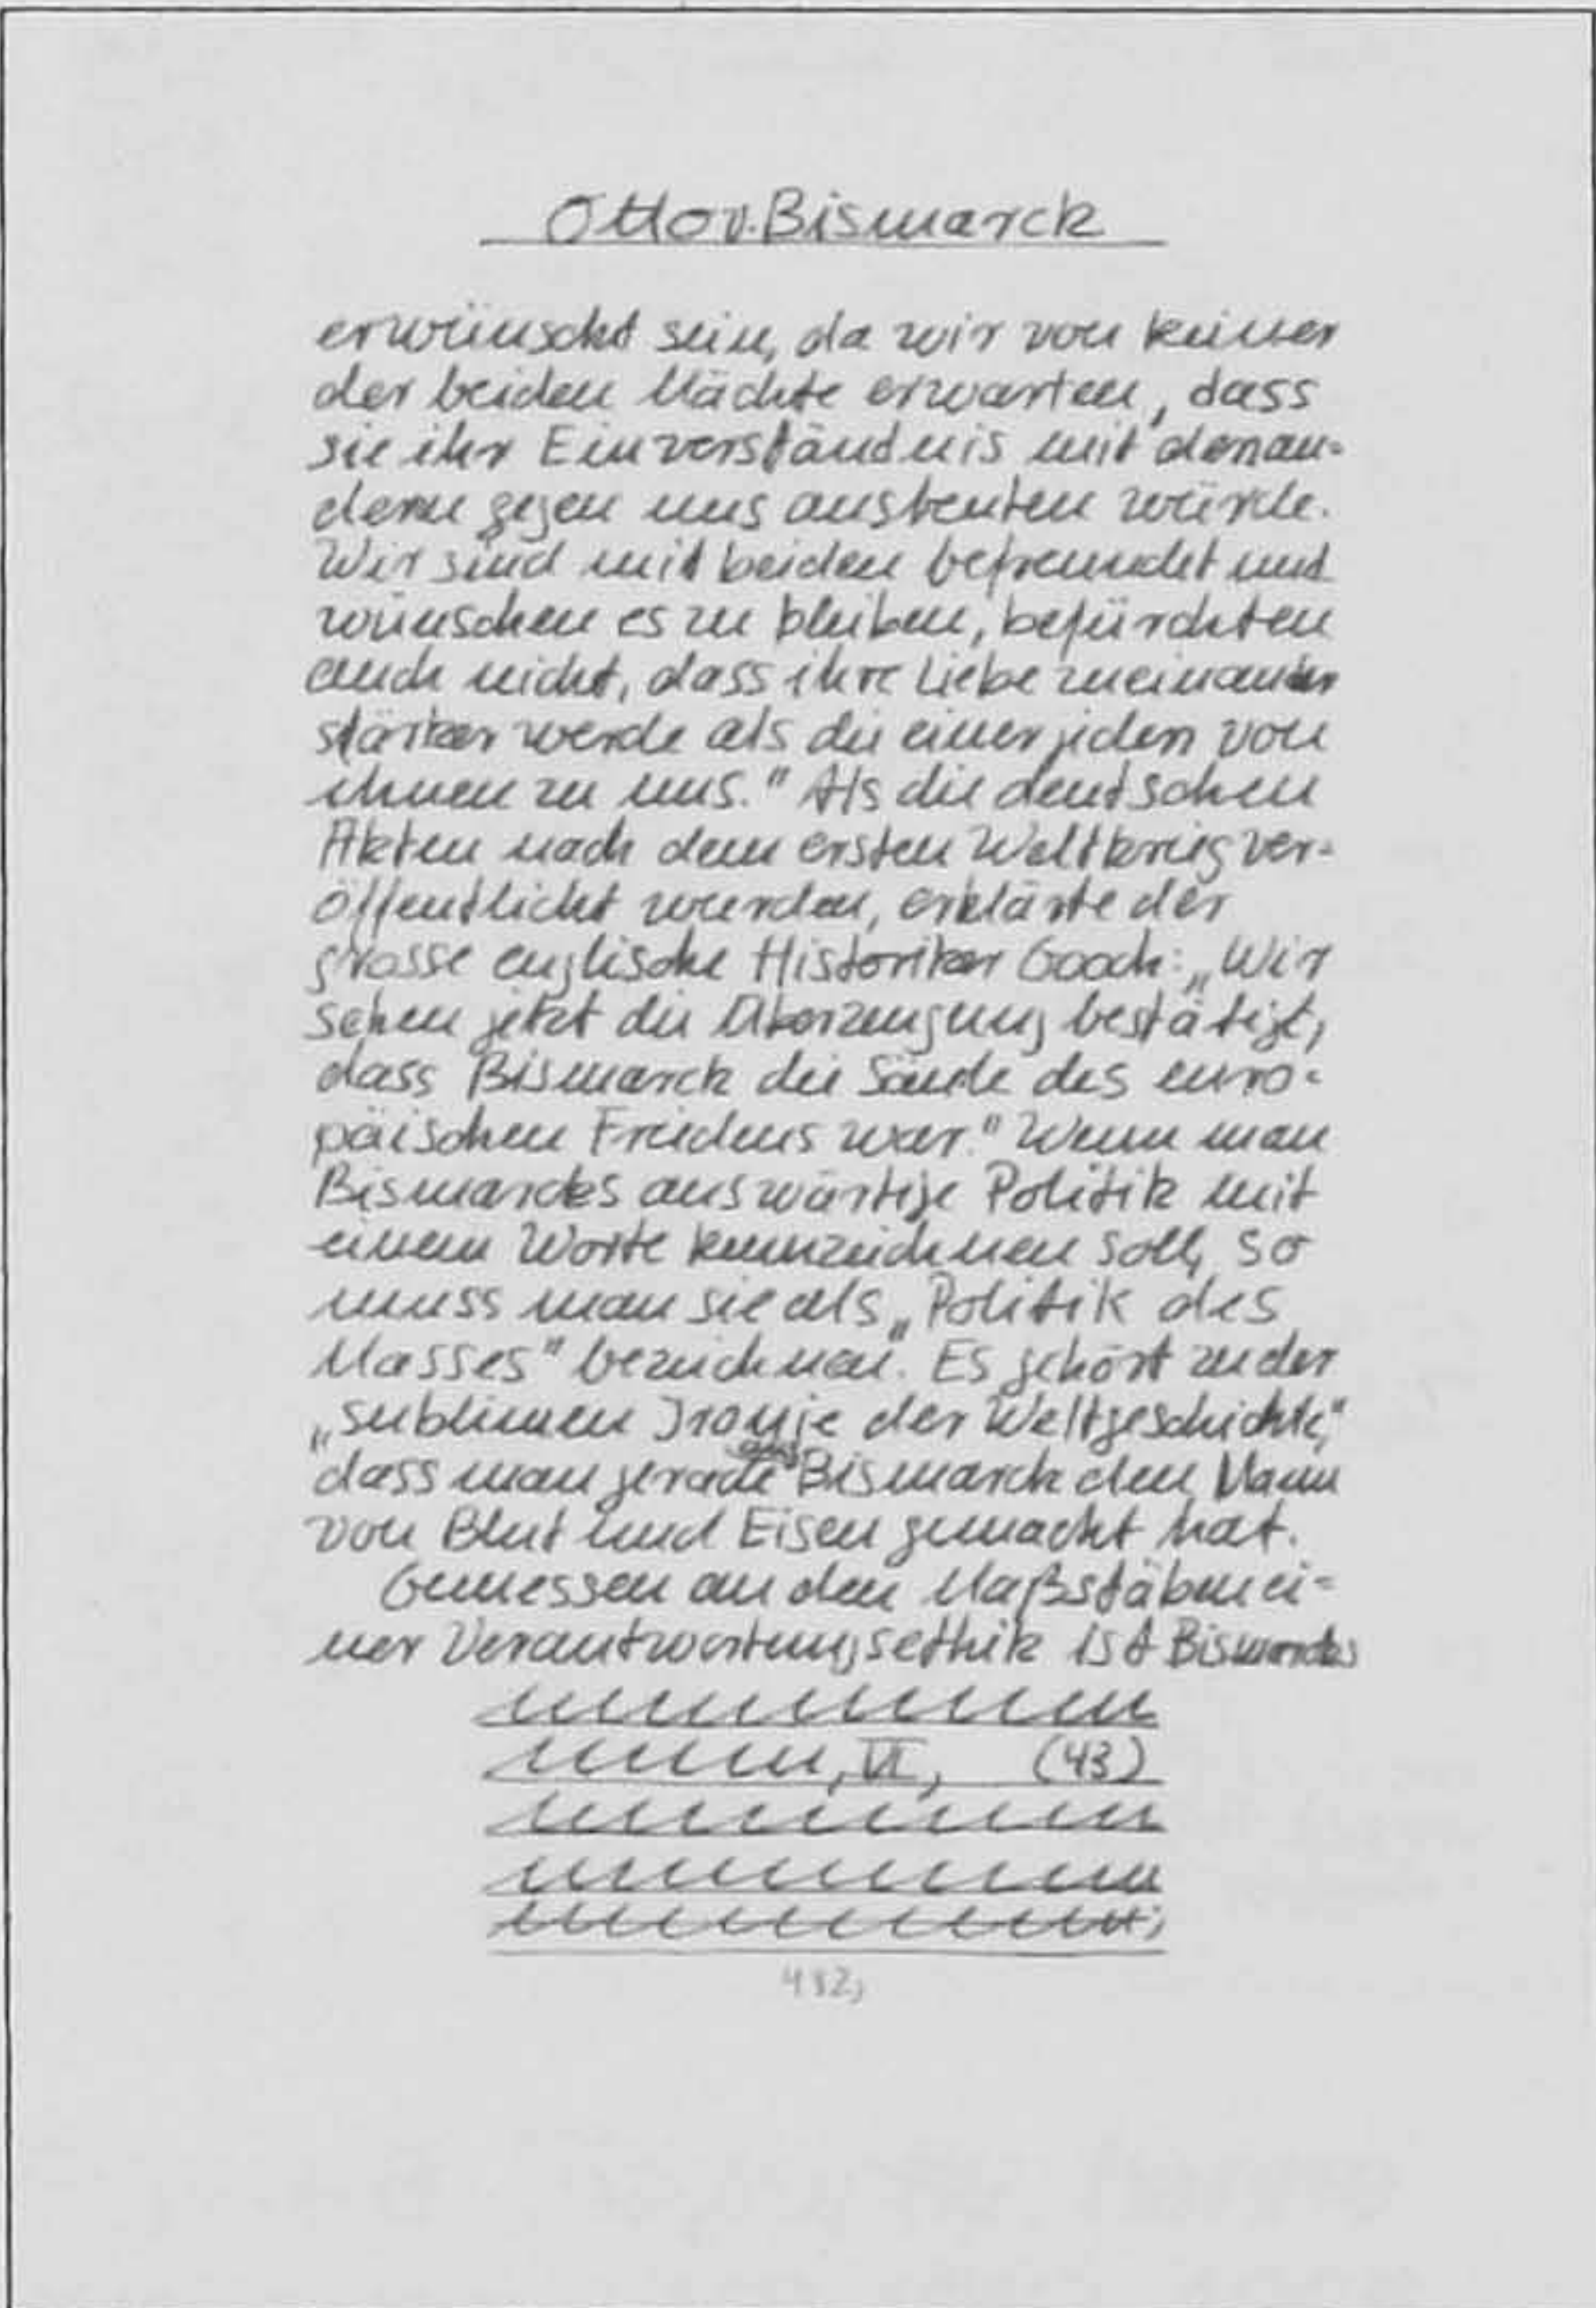 Otto v. Bismarck
erwünscht sein, da wir von keiner
der beiden Mächte erwarten, dass
sie ihr Einverständnis mit der an-
dern gegen uns ausbeuten würde.
Wir sind mit beiden befreundet und
wünschen es zu bleiben, befürchten
auch nicht, dass ihre Liebe zueinander
stärker werde als die einer jeden von
ihnen zu uns." Als die deutschen
Akten nach dem ersten Weltkrieg ver-
öffentlicht wurden, erklärte der
grosse englische Historiker Gooch: „Wir
sehen jetzt die Überzeugung bestätigt,
dass Bismarck die Säule des euro-
päischen Friedens war." Wenn man
Bismarcks auswärtige Politik mit
einem Worte kennzeichnen soll, so
muss man sie als „Politik des
Masses" bezeichnen. Es gehört zu der
„sublimen Ironie der Weltgeschichte,"
dass man gerade aus Bismarck den Mann
von Blut und Eisen gemacht hat.
Gemessen an den Maßstäben ei-
ner Verantwortungsethik ist Bismarcks
, VI, (43)